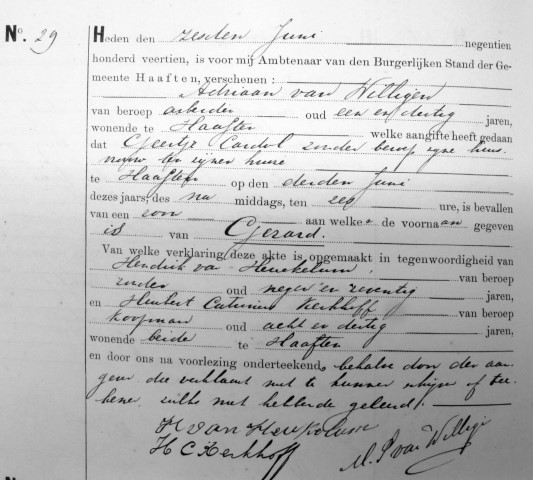 No. 29
Heden den zesden Juni negentien
honderd veertien, is voor mij Ambtenaar van den Burgerlijken Stand der Ge-
meente Haaften, verschenen:
Adriaan van Willigen
van beroep arbeider oud een en dertig jaren,
wonende te Haaften welke aangifte heeft gedaan
dat Geertje Cardol zonder beroep zijne huis-
vrouw ten zijnen huize
te Haaften op den derden Juni
dezes jaars, des na middags, ten zes ure, is bevallen
van een zoon aan welke de voornaam gegeven
is van Gerard.
Van welke verklaring deze akte is opgemaakt in tegenwoordigheid van
Hendrik van Heukelum, van beroep
zonder oud negen en zeventig jaren,
en Huibert Kerkhoff van beroep
koopman oud acht en dertig jaren,
wonende beide te Haaften
en door ons na voorlezing onderteekend, behalve door den aan-
gever die verklaart niet te kunnen schrijven of tee-
kenen, zulks niet hebbende geleerd.
H van Heukelum
H C Kerkhoff
van Willige